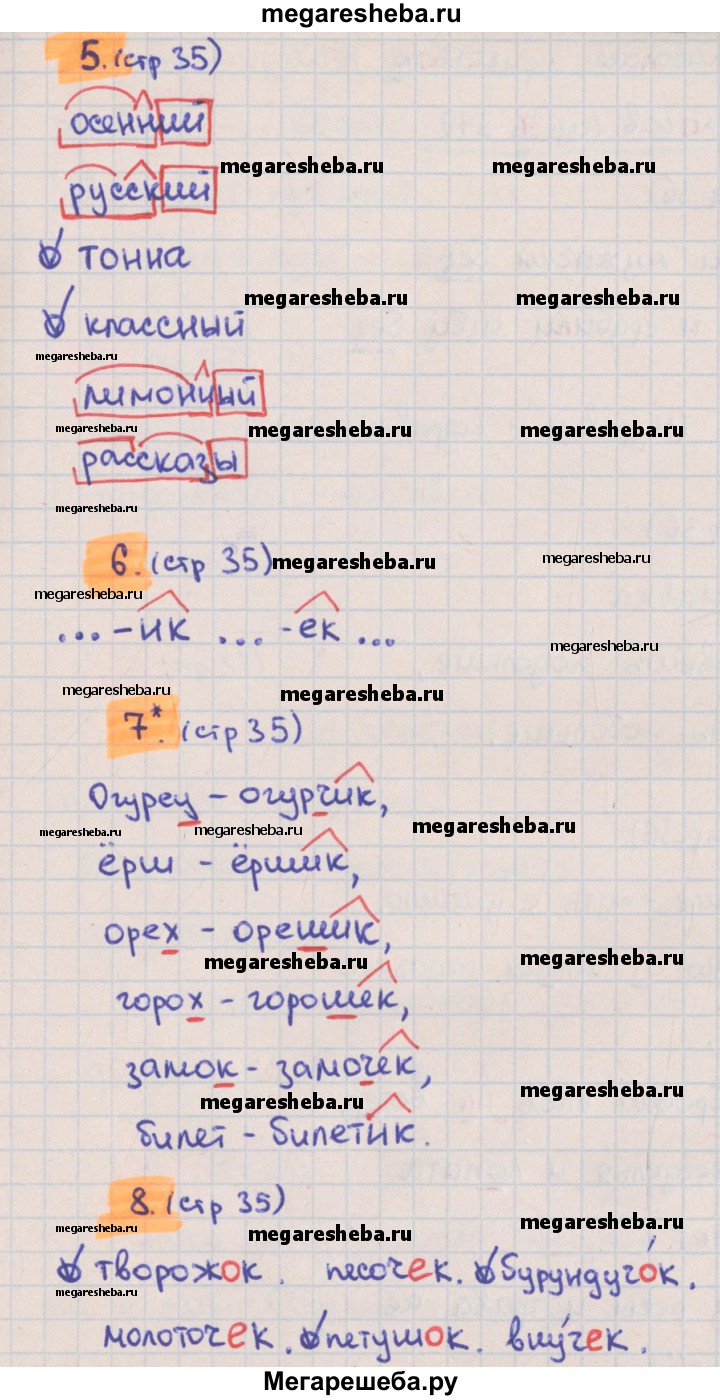 megaresheba.ru
5. (стр 35)
осенний
megaresheba.ru megaresheba.ru
русский
тонна
megaresheba.ru megaresheba.ru
классный
megaresheba.ru
лимонный
megaresheba.ru megaresheba.ru megaresheba.ru
рассказы
megaresheba.ru
6. (стр 35) megaresheba.ru megaresheba.ru
megaresheba.ru
... -ик ... -ек ...
megaresheba.ru
megaresheba.ru megaresheba.ru
7*. (стр 35)
Огурец - огурчик,
megaresheba.ru megaresheba.ru megaresheba.ru
ёрш - ёршик,
орех - орешик,
megaresheba.ru megaresheba.ru
горох - горошек,
замок - замочек,
megaresheba.ru megaresheba.ru
билет - билетик.
8. (стр 35)
megaresheba.ru megaresheba.ru megaresheba.ru
творожок. песочек. бурундучо́к.
megaresheba.ru
молоточек. петушок. вну́чек.
Мегарешеба.ру